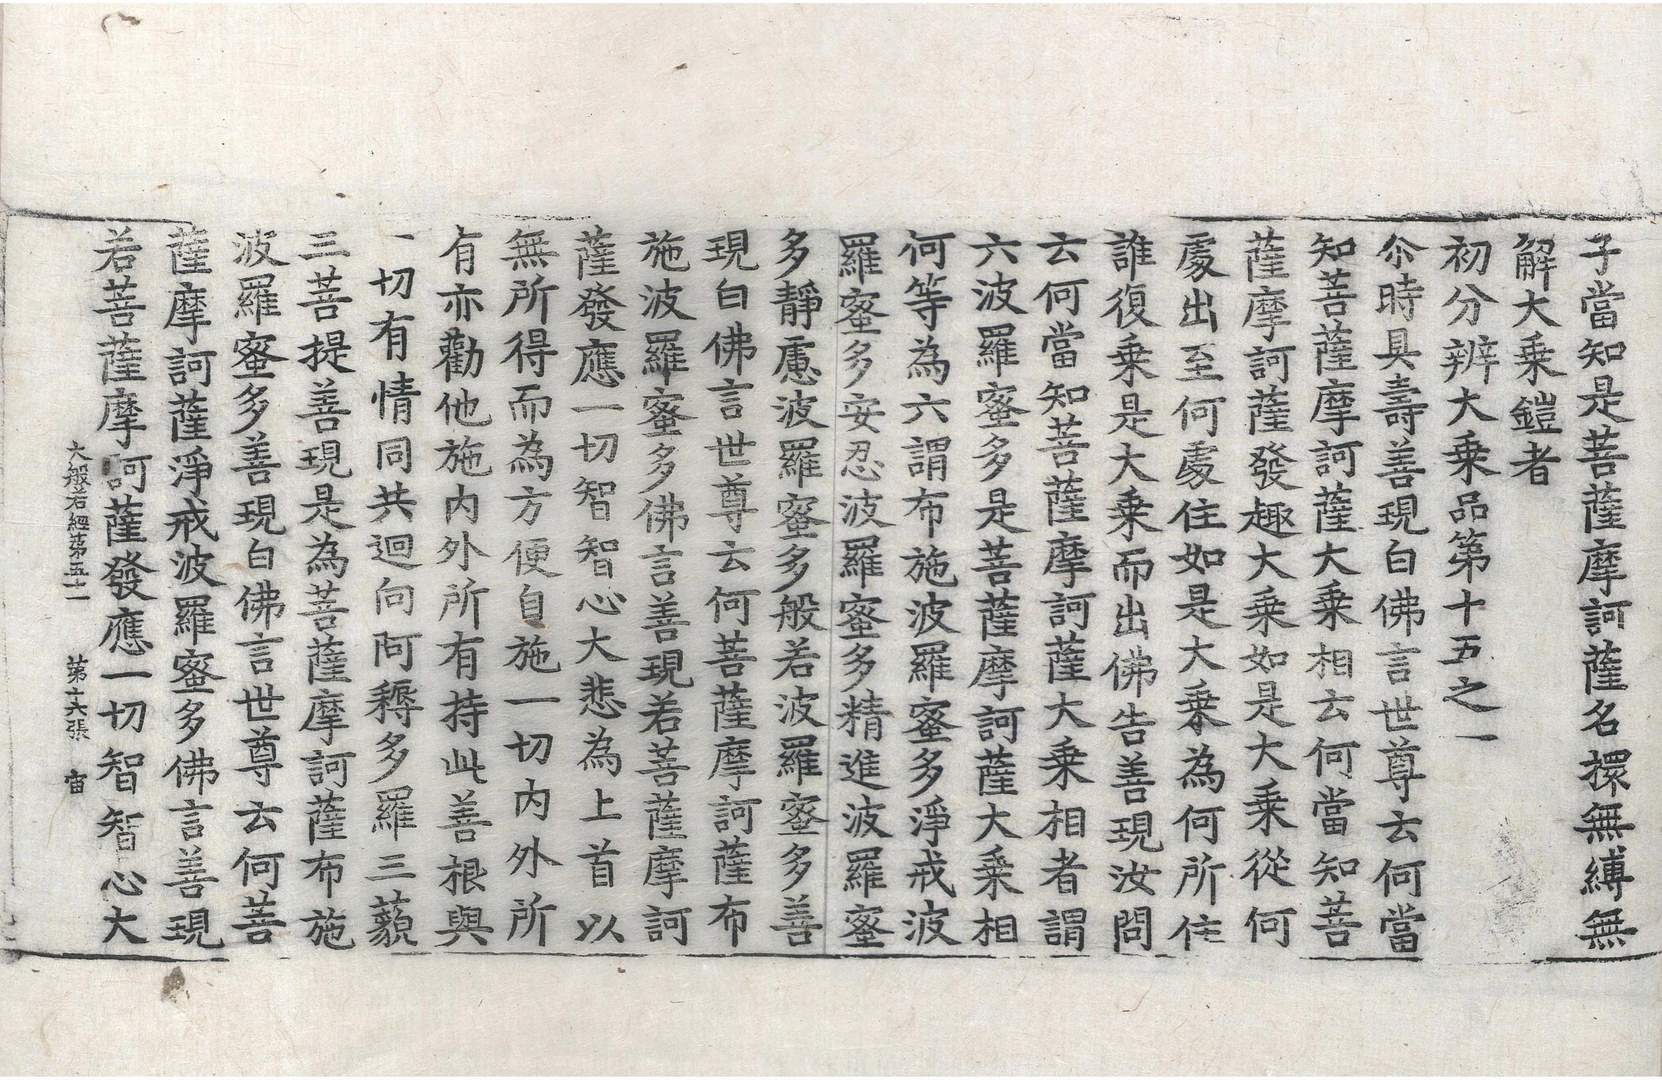 子當知是菩薩摩訶薩名擐無縛無
解大乘鎧者
初分辨大乘品第十五之一
尒時具壽善現白佛言世尊云何當
知菩薩摩訶薩大乘相云何當知菩
薩摩訶薩發趣大乘如是大乘從何
處出至何處住如是大乘為何所住
誰復乘是大乘而出佛告善現汝問
云何當知菩薩摩訶薩大乘相者謂
六波羅蜜多是菩薩摩訶薩大乘相
何等為六謂布施波羅蜜多淨戒波
羅蜜多安忍波羅蜜多精進波羅蜜
多靜慮波羅蜜多般若波羅蜜多善
現白佛言世尊云何菩薩摩訶薩布
施波羅蜜多佛言善現若菩薩摩訶
薩發應一切智智心大悲為上首以
無所得而為方便自施一切內外所
有亦勸他施內外所有持此善根與
一切有情同共迴向阿耨多羅三藐
三菩提善現是為菩薩摩訶薩布施
波羅蜜多善現白佛言世尊云何菩
薩摩訶薩淨戒波羅蜜多佛言善現
若菩薩摩訶薩發應一切智智心大
大般若經第五十一 第十六張 宙